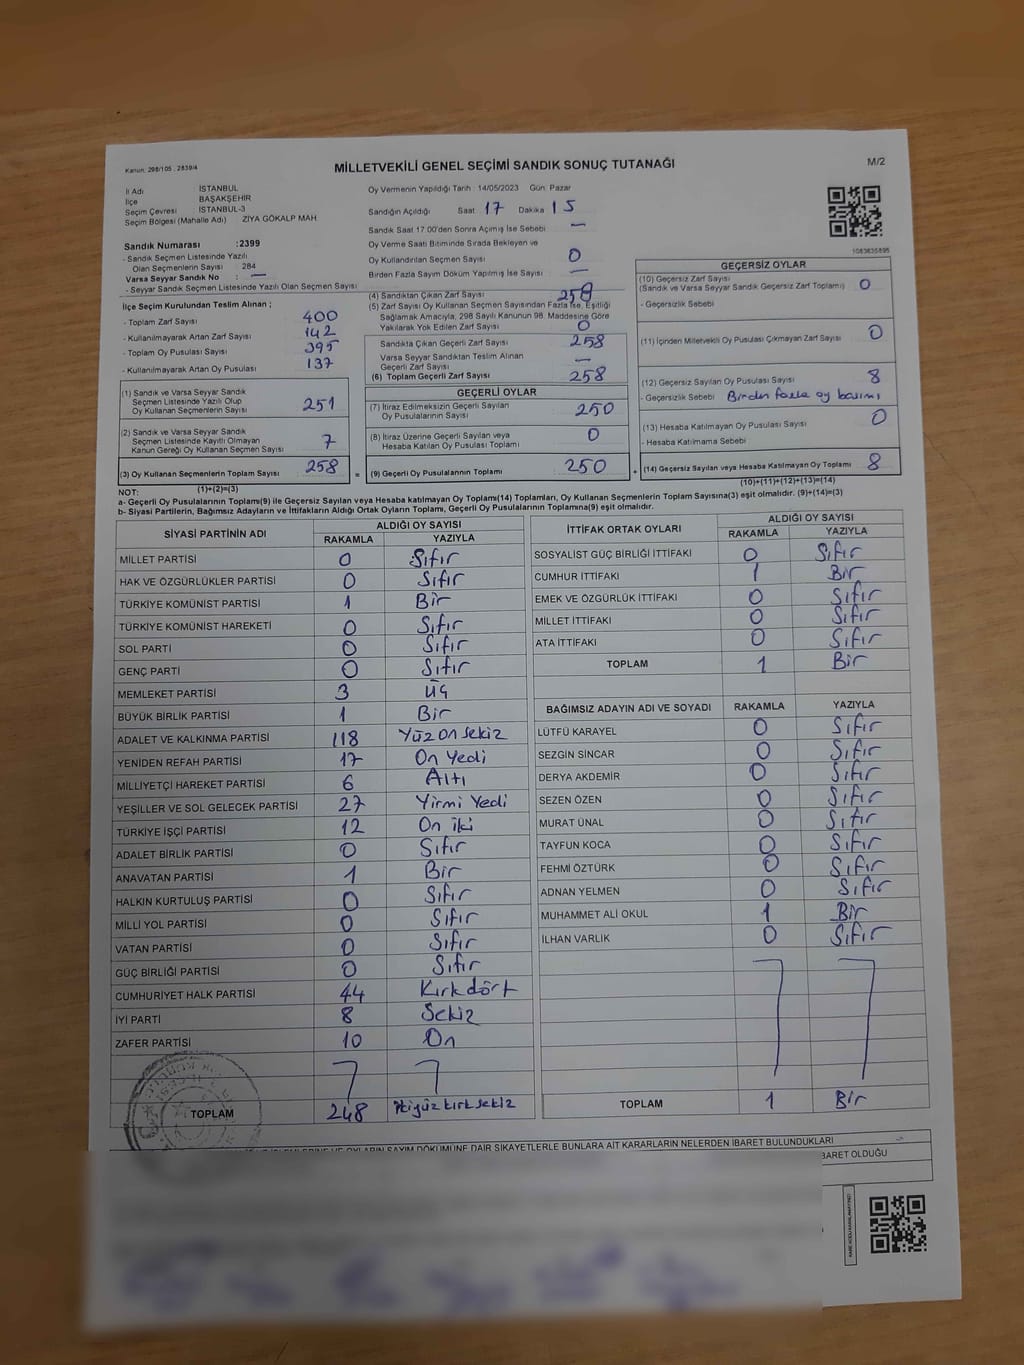 Kanun: 298/105 , 2839/4
MİLLETVEKİLİ GENEL SEÇİMİ SANDIK SONUÇ TUTANAĞI
M/2
İl Adı İSTANBUL
İlçe BAŞAKŞEHİR
Seçim Çevresi İSTANBUL-3
Seçim Bölgesi (Mahalle Adı) ZİYA GÖKALP MAH.
Sandık Numarası :2399
- Sandık Seçmen Listesinde Yazılı
Olan Seçmenlerin Sayısı : 284
Varsa Seyyar Sandık No : —
- Seyyar Sandık Seçmen Listesinde Yazılı Olan Seçmen Sayısı
İlçe Seçim Kurulundan Teslim Alınan ;
- Toplam Zarf Sayısı 400
- Kullanılmayarak Artan Zarf Sayısı 142
- Toplam Oy Pusulası Sayısı 395
- Kullanılmayarak Artan Oy Pusulası 137
(1) Sandık ve Varsa Seyyar Sandık
Seçmen Listesinde Yazılı Olup
Oy Kullanan Seçmenlerin Sayısı 251
(2) Sandık ve Varsa Seyyar Sandık
Seçmen Listesinde Kayıtlı Olmayan
Kanun Gereği Oy Kullanan Seçmen Sayısı 7
(3) Oy Kullanan Seçmenlerin Toplam Sayısı 258
(1)+(2)=(3)
Oy Vermenin Yapıldığı Tarih : 14/05/2023 Gün: Pazar
Sandığın Açıldığı Saat 17 Dakika 15
Sandık Saat 17.00'den Sonra Açılmış İse Sebebi —
Oy Verme Saati Bitiminde Sırada Bekleyen ve
Oy Kullandırılan Seçmen Sayısı 0
Birden Fazla Sayım Döküm Yapılmış İse Sayısı —
(4) Sandıktan Çıkan Zarf Sayısı 258
(5) Zarf Sayısı Oy Kullanan Seçmen Sayısından Fazla ise, Eşitliği
Sağlamak Amacıyla; 298 Sayılı Kanunun 98. Maddesine Göre
Yakılarak Yok Edilen Zarf Sayısı 0
Sandıkta Çıkan Geçerli Zarf Sayısı 258
Varsa Seyyar Sandıktan Teslim Alınan
Geçerli Zarf Sayısı —
(6) Toplam Geçerli Zarf Sayısı 258
GEÇERLİ OYLAR
(7) İtiraz Edilmeksizin Geçerli Sayılan
Oy Pusulalarının Sayısı 250
(8) İtiraz Üzerine Geçerli Sayılan veya
Hesaba Katılan Oy Pusulası Toplamı 0
= (9) Geçerli Oy Pusulalarının Toplamı 250
1083835895
GEÇERSİZ OYLAR
(10) Geçersiz Zarf Sayısı
(Sandık ve Varsa Seyyar Sandık Geçersiz Zarf Toplamı) 0
- Geçersizlik Sebebi
(11) İçinden Milletvekili Oy Pusulası Çıkmayan Zarf Sayısı 0
(12) Geçersiz Sayılan Oy Pusulası Sayısı 8
- Geçersizlik Sebebi Birden fazla oy basımı
(13) Hesaba Katılmayan Oy Pusulası Sayısı 0
- Hesaba Katılmama Sebebi
+ (14) Geçersiz Sayılan veya Hesaba Katılmayan Oy Toplamı 8
(10)+(11)+(12)+(13)=(14)
NOT:
a- Geçerli Oy Pusulalarının Toplamı(9) ile Geçersiz Sayılan veya Hesaba katılmayan Oy Toplamı(14) Toplamları, Oy Kullanan Seçmenlerin Toplam Sayısına(3) eşit olmalıdır. (9)+(14)=(3)
b- Siyasi Partilerin, Bağımsız Adayların ve İttifakların Aldığı Ortak Oyların Toplamı, Geçerli Oy Pusulalarının Toplamına(9) eşit olmalıdır.
SİYASİ PARTİNİN ADI ALDIĞI OY SAYISI
RAKAMLA YAZIYLA
MİLLET PARTİSİ 0 Sıfır
HAK VE ÖZGÜRLÜKLER PARTİSİ 0 Sıfır
TÜRKİYE KOMÜNİST PARTİSİ 1 Bir
TÜRKİYE KOMÜNİST HAREKETİ 0 Sıfır
SOL PARTİ 0 Sıfır
GENÇ PARTİ 0 Sıfır
MEMLEKET PARTİSİ 3 üç
BÜYÜK BİRLİK PARTİSİ 1 Bir
ADALET VE KALKINMA PARTİSİ 118 Yüz on sekiz
YENİDEN REFAH PARTİSİ 17 On Yedi
MİLLİYETÇİ HAREKET PARTİSİ 6 Altı
YEŞİLLER VE SOL GELECEK PARTİSİ 27 Yirmi Yedi
TÜRKİYE İŞÇİ PARTİSİ 12 On iki
ADALET BİRLİK PARTİSİ 0 Sıfır
ANAVATAN PARTİSİ 1 Bir
HALKIN KURTULUŞ PARTİSİ 0 Sıfır
MİLLİ YOL PARTİSİ 0 Sıfır
VATAN PARTİSİ 0 Sıfır
GÜÇ BİRLİĞİ PARTİSİ 0 Sıfır
CUMHURİYET HALK PARTİSİ 44 Kırk dört
İYİ PARTİ 8 Sekiz
ZAFER PARTİSİ 10 On
TOPLAM 248 ikiyüz kırk sekiz
İTTİFAK ORTAK OYLARI ALDIĞI OY SAYISI
RAKAMLA YAZIYLA
SOSYALİST GÜÇ BİRLİĞİ İTTİFAKI 0 Sıfır
CUMHUR İTTİFAKI 1 Bir
EMEK VE ÖZGÜRLÜK İTTİFAKI 0 Sıfır
MİLLET İTTİFAKI 0 Sıfır
ATA İTTİFAKI 0 Sıfır
TOPLAM 1 Bir
BAĞIMSIZ ADAYIN ADI VE SOYADI RAKAMLA YAZIYLA
LÜTFÜ KARAYEL 0 Sıfır
SEZGİN SİNCAR 0 Sıfır
DERYA AKDEMİR 0 Sıfır
SEZEN ÖZEN 0 Sıfır
MURAT ÜNAL 0 Sıfır
TAYFUN KOCA 0 Sıfır
FEHMİ ÖZTÜRK 0 Sıfır
ADNAN YELMEN 0 Sıfır
MUHAMMET ALİ OKUL 1 Bir
İLHAN VARLIK 0 Sıfır
TOPLAM 1 Bir
OYLARIN SAYIM DÖKÜMÜNE DAİR ŞİKAYETLERLE BUNLARA AİT KARARLARIN NELERDEN İBARET BULUNDUKLARI
İBARET OLDUĞU